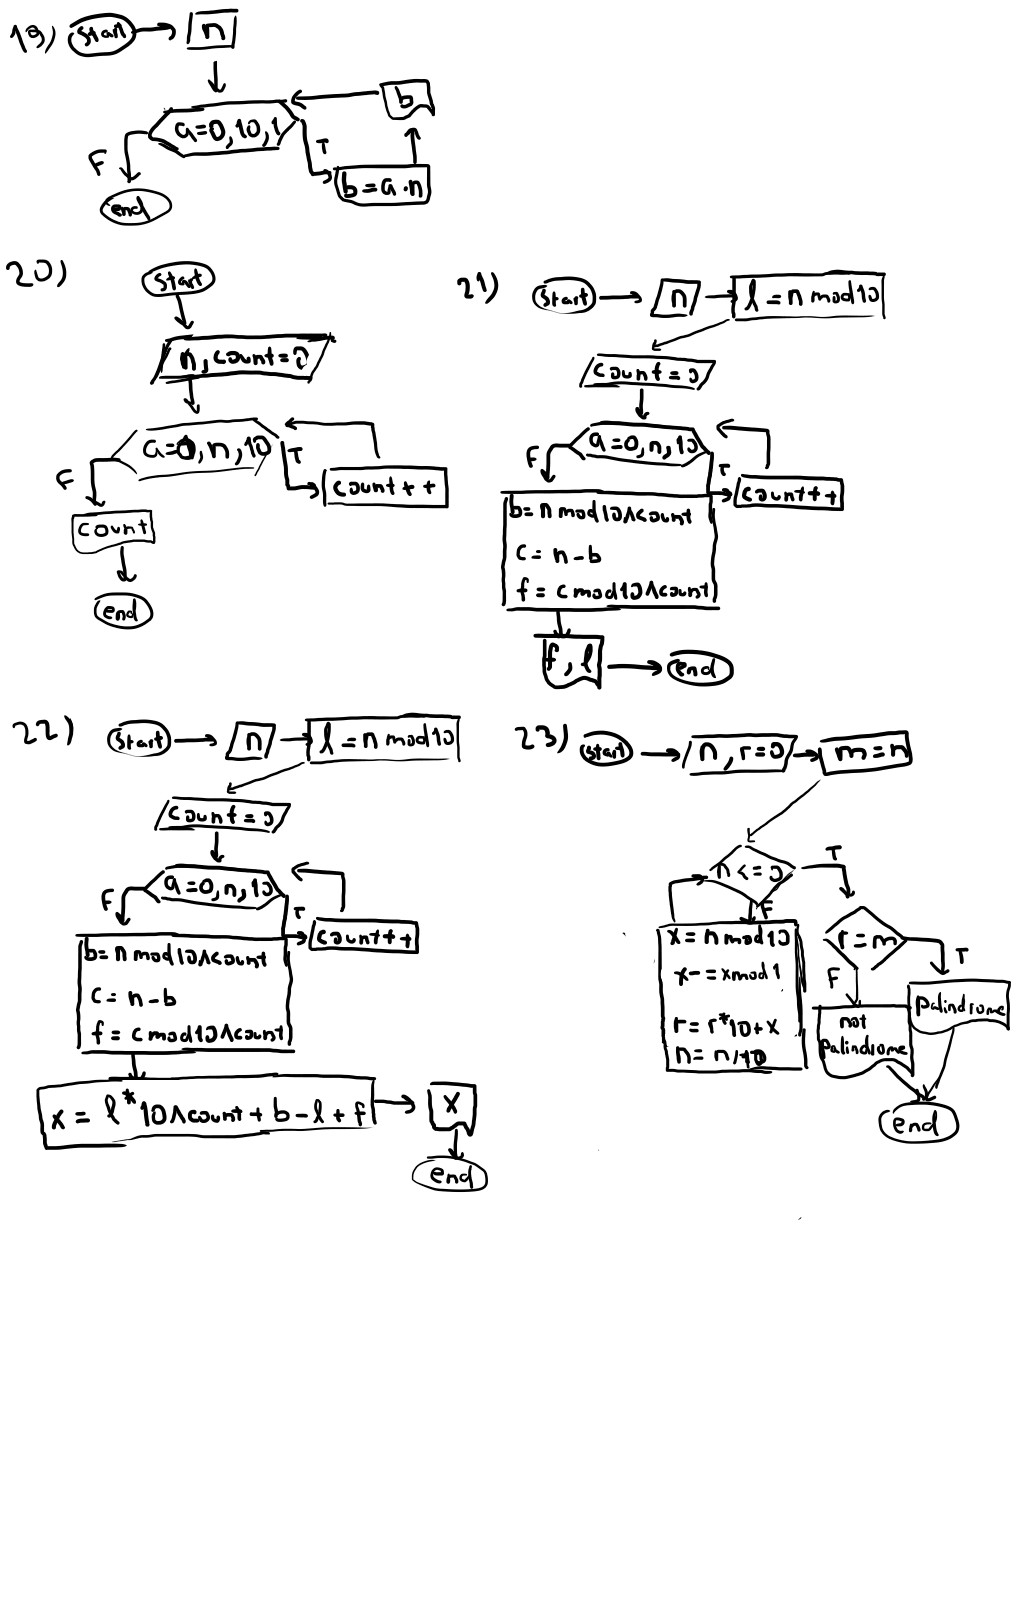 19) Start
n
a=0,10,1
F
T
b=a·n
b
end
20)
Start
n, count=0
a=0,n,10
F
T
count++
count
end
21) Start
n
l=n mod10
count=0
a=0,n,10
F
T
count++
b=n mod10^count
c=n-b
f=c mod10^count
f, l
end
22) Start
n
l=n mod10
count=0
a=0,n,10
F
T
count++
b=n mod10^count
c=n-b
f=c mod10^count
x=l*10^count+b-l+f
x
end
23) Start
n, r=0
m=n
n<=0
T
F
x=n mod10
x-=x mod1
r=r*10+x
n=n/10
r=m
T
F
Palindrome
not
Palindrome
end